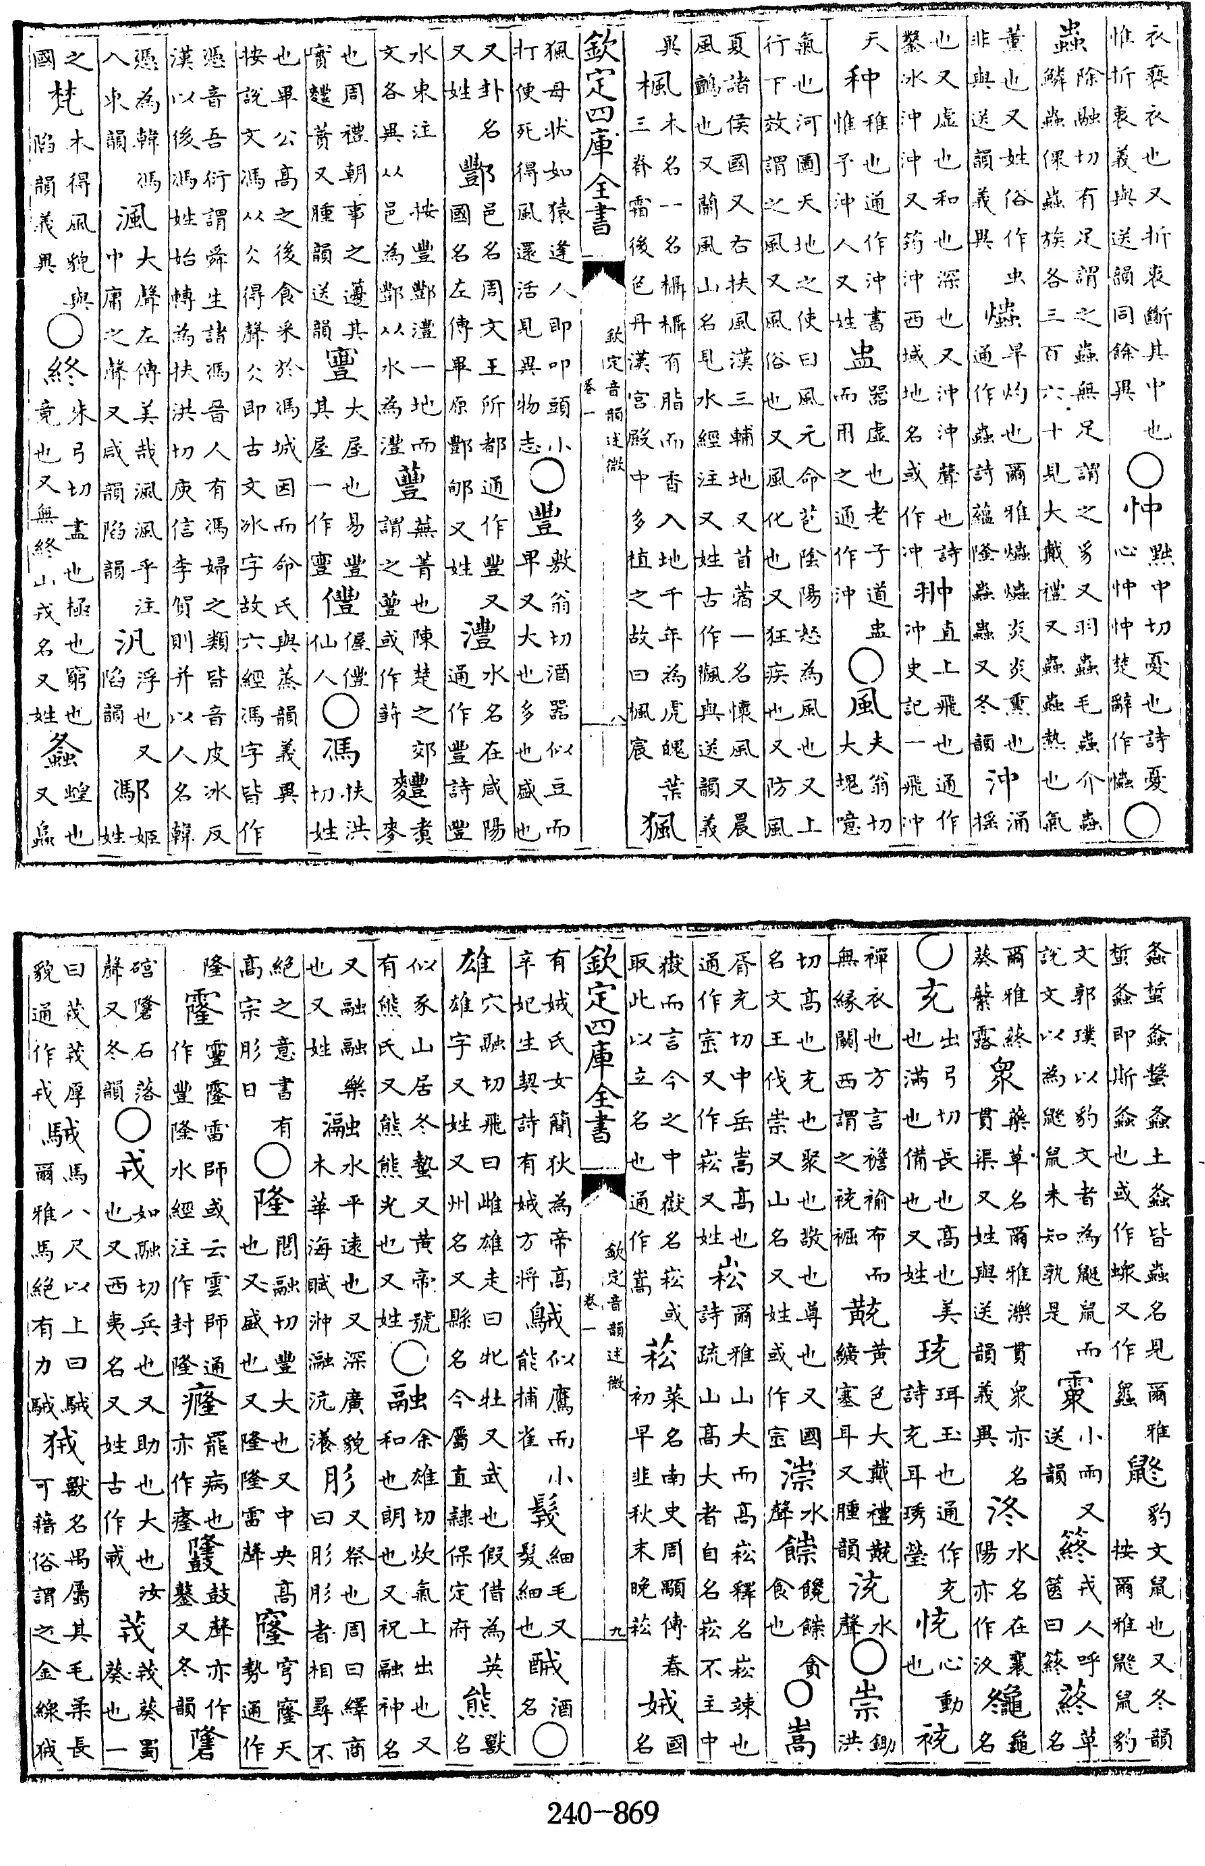 衣褻衣也又折衷斷其中也惟折衷義與送韻同餘異○忡㸃中切憂也詩憂心忡忡楚辭作爞○
蟲除融切有足謂之蟲無足謂之豸又羽蟲毛蟲介蟲鱗蟲倮蟲族各三百六十見大戴禮又蟲蟲熱也氣
董也又姓俗作虫非與送韻義異爞旱灼也爾雅爞爞炎炎熏也通作蟲詩蘊隆蟲蟲又冬韻沖涌摇
也又虛也和也深也又沖沖聲也詩鑿冰沖沖又筠沖西域地名或作冲翀直上飛也通作冲史記一飛冲
天种稚也通作沖書惟予沖人又姓盅器虛也老子道盅而用之通作沖○風夫翁切大塊噫
氣也河圖天地之使曰風元命苞陰陽怒為風也又上行下效謂之風又風俗也又風化也又狂疾也又防風
夏諸侯國又右扶風漢三輔地又苜蓿一名懷風又晨風鸇也又蘭風山名見水經注又姓古作飌與送韻義
異楓木名一名欇欇有脂而香入地千年為虎魄葉三脊霜後色丹漢宮殿中多植之故曰楓宸猦
欽定四庫全書
欽定音韻述微
卷一
八
猦母狀如猿逢人即叩頭小打便死得風還活見異物志○豐敷翁切酒器似豆而卑又大也多也盛也
又卦名又姓酆邑名周文王所都通作豐又國名左傳畢原酆郇又姓灃水名在咸陽通作豐詩豐
水東注按豐酆灃一地而文各異从邑為酆从水為灃蘴蕪菁也陳楚之郊謂之蘴或作葑麷煑麥
也周禮朝事之籩其實麷蕡又腫韻送韻寷大屋也易豐其屋一作靊僼偓僼仙人○馮扶洪切姓
也畢公高之後食采於馮城因而命氏與蒸韻義異按說文馮从仌得聲仌即古文冰字故六經馮字皆作
憑音吾衍謂舜生諸馮晉人有馮婦之類皆音皮冰反漢以後馮姓始轉為扶洪切庾信李賀則并以人名韓
憑為韓馮入東韻渢大聲左傳美哉渢渢乎注中庸之聲又咸韻陷韻汎浮也又陷韻䣕姬姓
之國梵木得風貌與陷韻義異○終朱弓切盡也極也窮也竟也又無終山戎名又姓螽蝗也又螽
螽蜇螽蟿螽土螽皆蟲名見爾雅蜇螽即斯螽也或作又作鼨豹文鼠也又冬韻按爾雅鼨鼠豹
文郭璞以豹文者為鼮鼠而說文以為鼮鼠未知孰是霥小雨又送韻䈺戎人呼筥曰䈺蔠草名
爾雅蔠葵蘩露衆藥草名爾雅濼貫衆亦名貫渠又姓與送韻義異泈水名在襄陽亦作汷䶱龜名
○充出弓切長也高也美也滿也備也又姓珫珥玉也通作充詩充耳琇瑩心動也䘪
襌衣也方言襜褕布而無緣關西謂之䘪裾黈黃色大戴禮黈纊塞耳又腫韻水聲○崇鋤洪
切高也充也聚也敬也尊也又國名文王伐崇又山名又姓或作崈漴水聲䭗饞䭗貪食也○嵩
胥充切中岳嵩高也通作崈又作崧又姓崧爾雅山大而高崧釋名崧竦也詩疏山高大者自名崧不主中
嶽而言今之中嶽名崧或取此以立名也通作嵩菘菜名南史周顒傳春初早韭秋末晚菘娀國名
欽定四庫全書
欽定音韻述微
卷一
九
有娀氏女簡狄為帝高辛妃生契詩有娀方將䳷似鷹而小能捕雀髶細毛又髮細也䣑酒名○
雄穴融切飛曰雌雄走曰牝牡又武也假借為英雄字又姓又州名又縣名今屬直隸保定府熊獸名
似豕山居冬蟄又黃帝號有熊氏又熊熊光也又姓○融余雄切炊氣上出也又和也朗也又祝融神名
又融融樂也又姓瀜水平遠也又深廣貌木華海賦沖瀜沆瀁肜又祭也周曰繹商曰肜肜者相尋不
絶之意書有高宗肜日○隆閭融切豐大也又中央高也又盛也又隆隆雷聲窿穹窿天勢通作
隆霳靊霳雷師或云雲師通作豐隆水經注作封隆癃罷病也亦作𤸇鼓聲亦作鼜又冬韻
硿石落聲又冬韻○戎如融切兵也又助也大也汝也又西夷名又姓古作茙茙葵蜀葵也一
曰茙茙厚貌通作戎駥馬八尺以上曰駥爾雅馬絕有力駥狨獸名禺屬其毛柔長可藉俗謂之金線狨
240-869